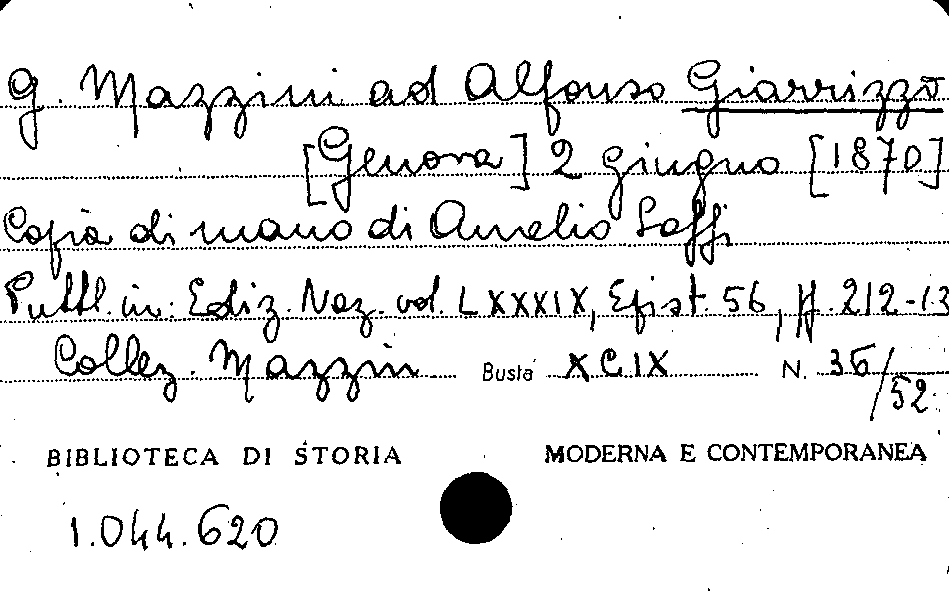 G. Mazzini ad Alfonso Giarrizzo
[Genova] 2 giugno [1870]
Copia di mano di Aurelio Saffi
Pubbl. in: Ediz. Naz. vol. LXXXIX, Epist. 56, pp. 212-13
Collez. Mazzini Busta XCIX N. 36/52
BIBLIOTECA DI STORIA MODERNA E CONTEMPORANEA
1.044.620